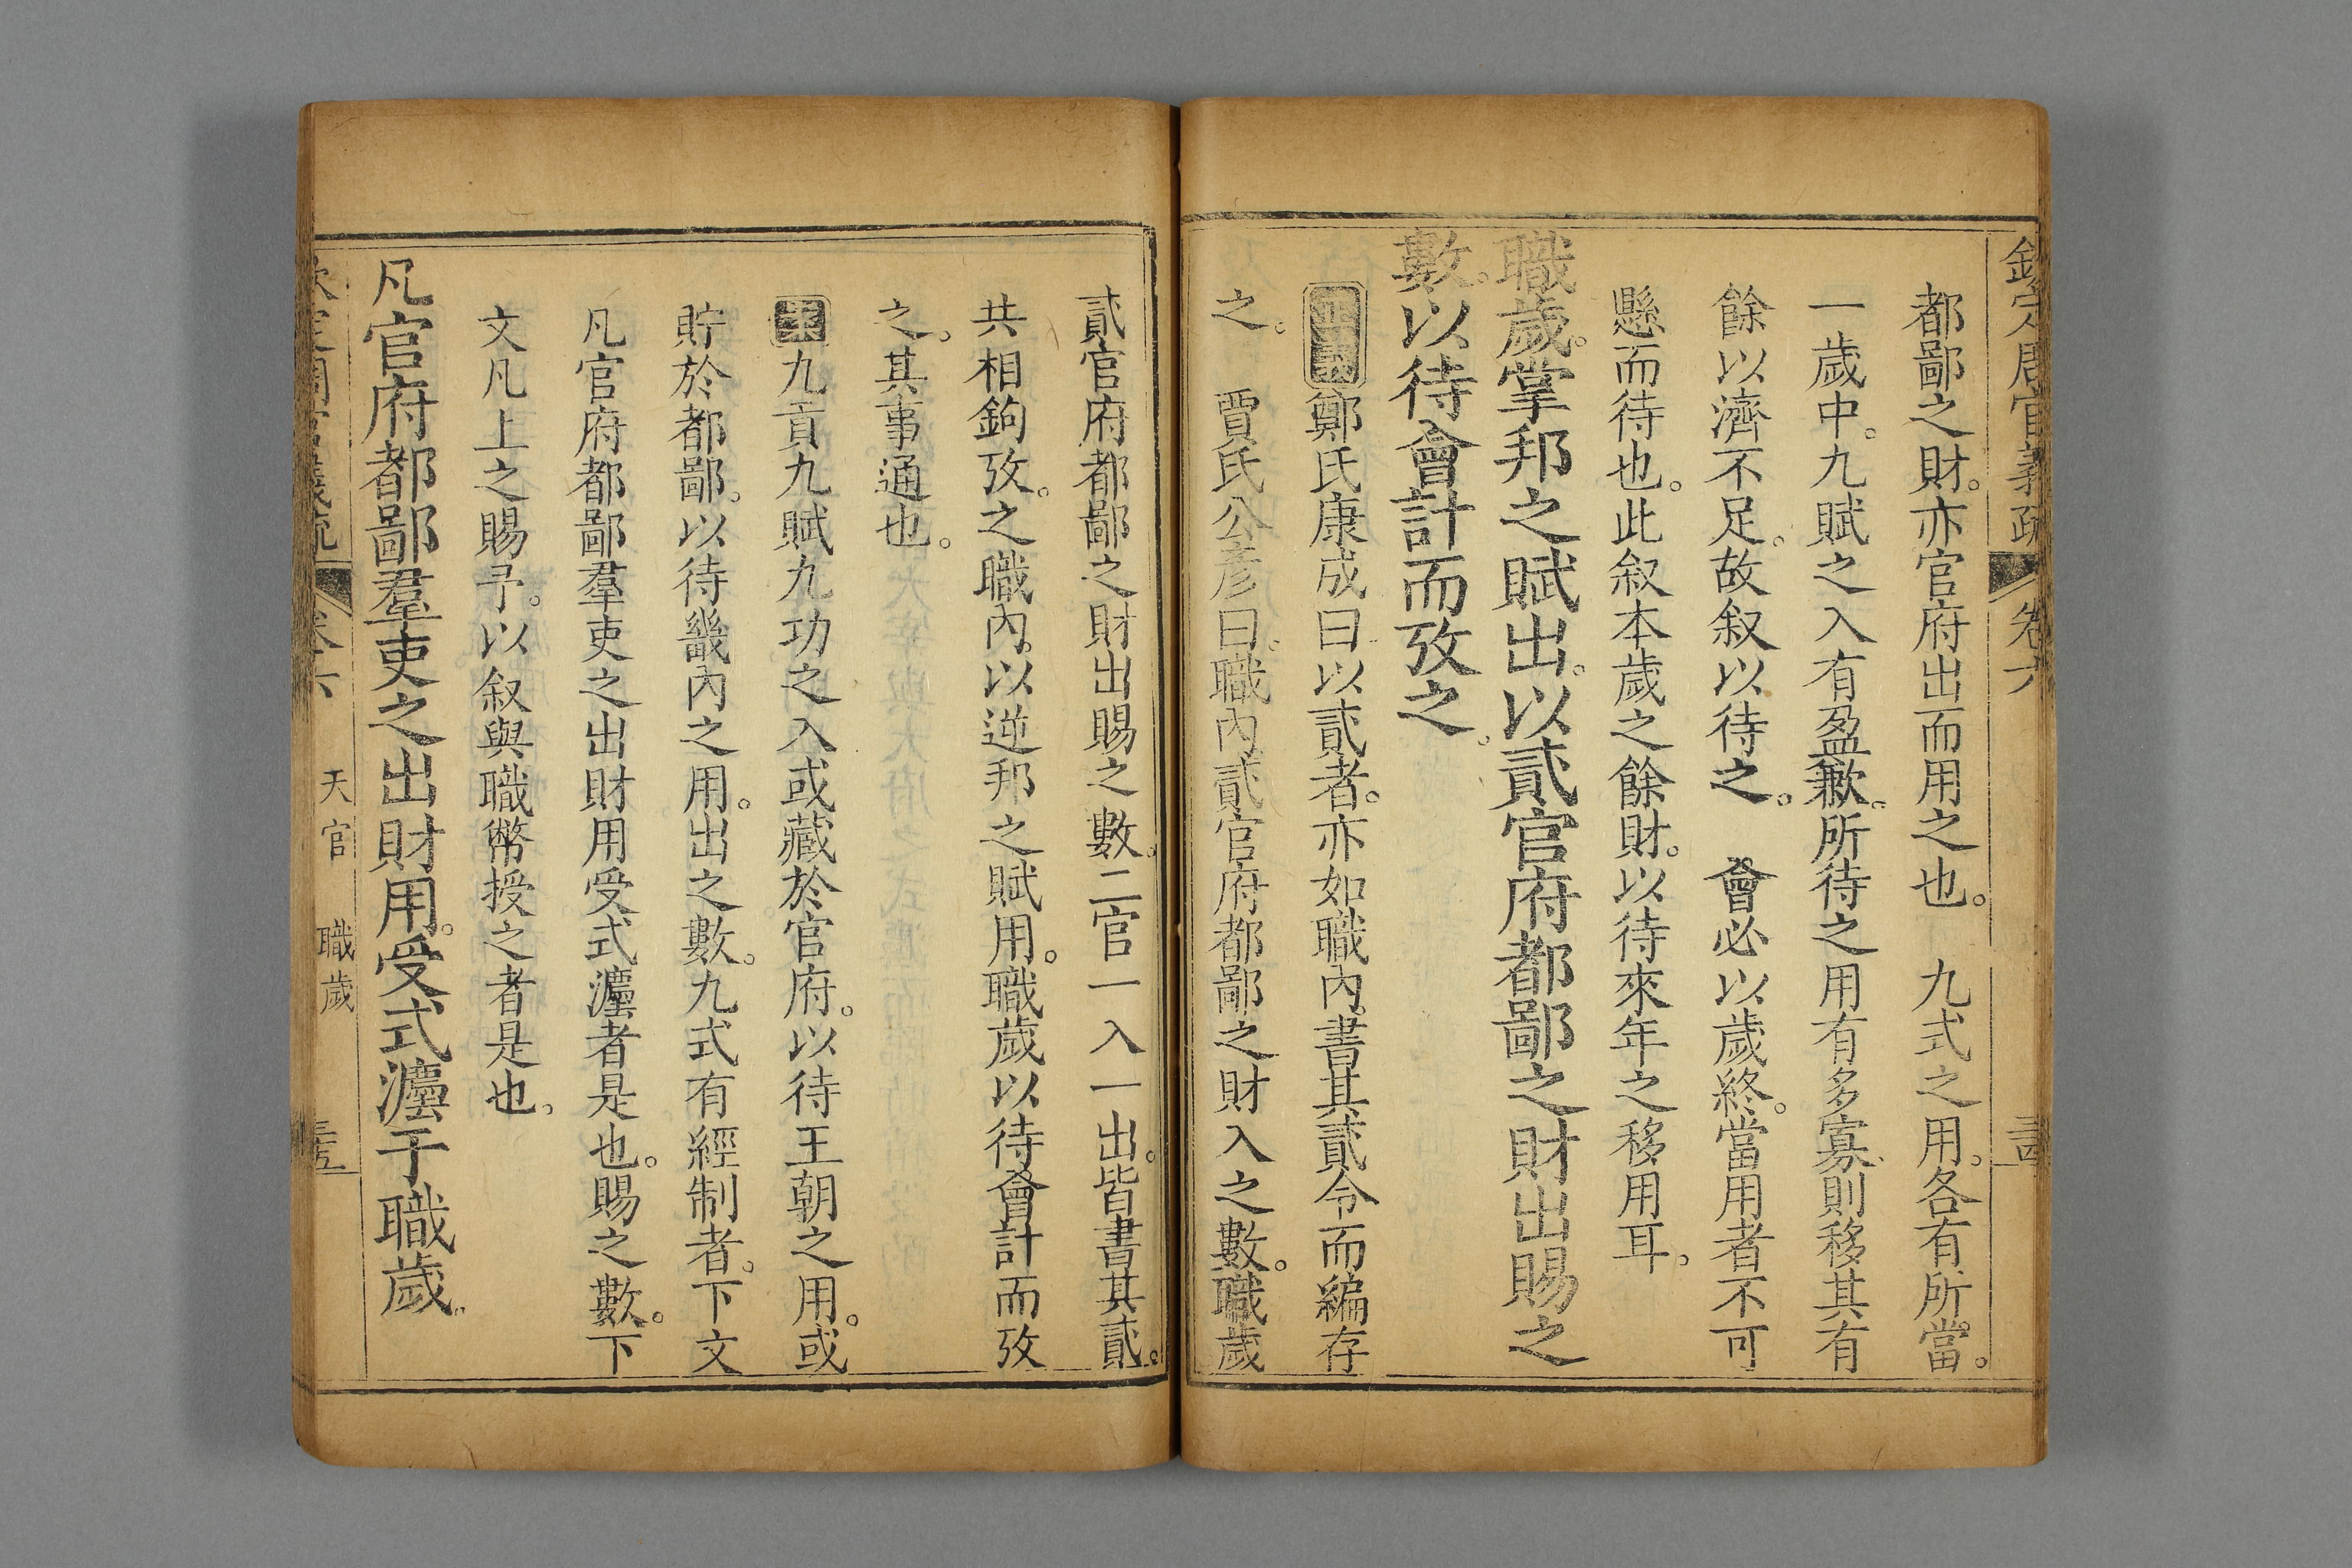 欽定周官義疏 卷六 三四
都鄙之財。亦官府出而用之也。 九式之用。各有所當。
一歲中。九賦之入有盈歉。所待之用有多寡。則移其有
餘以濟不足。故叙以待之。 會必以歲終。當用者不可
懸而待也。此叙本歲之餘財。以待來年之移用耳。
職歲。掌邦之賦出。以貳官府都鄙之財出賜之
數。以待會計而攷之。
正義鄭氏康成曰以貳者。亦如職內。書其貳令而編存
之。 賈氏公彥曰。職內貳官府都鄙之財入之數。職歲
貳官府都鄙之財出賜之數。二官一入一出。皆書其貳。
共相鉤攷。之職內。以逆邦之賦用。職歲以待會計而攷
之。其事通也。
九貢九賦九功之入或藏於官府。以待王朝之用。或
貯於都鄙。以待畿內之用。出之數。九式有經制者。下文
凡官府都鄙羣吏之出財用受式灋者是也。賜之數。下
文凡上之賜予。以叙與職幣授之者是也。
凡官府都鄙羣吏之出財用。受式灋于職歲。
欽定周官義疏 卷六 天官 職歲 三五